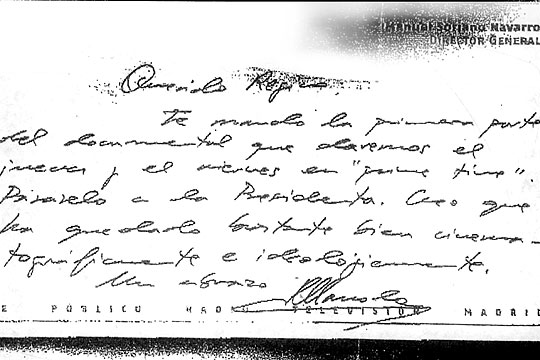 Manuel Soriano Navarro
DIRECTOR GENERAL
Querido Regino,
Te mando la primera parte
del documental que daremos el
jueves y el viernes en "prime time".
Pásaselo a la Presidenta. Creo que
ha quedado bastante bien cinema-
tográficamente e ideológicamente.
Un abrazo
Manolo
E PÚBLICO RADIO TELEVISIÓN MADRID